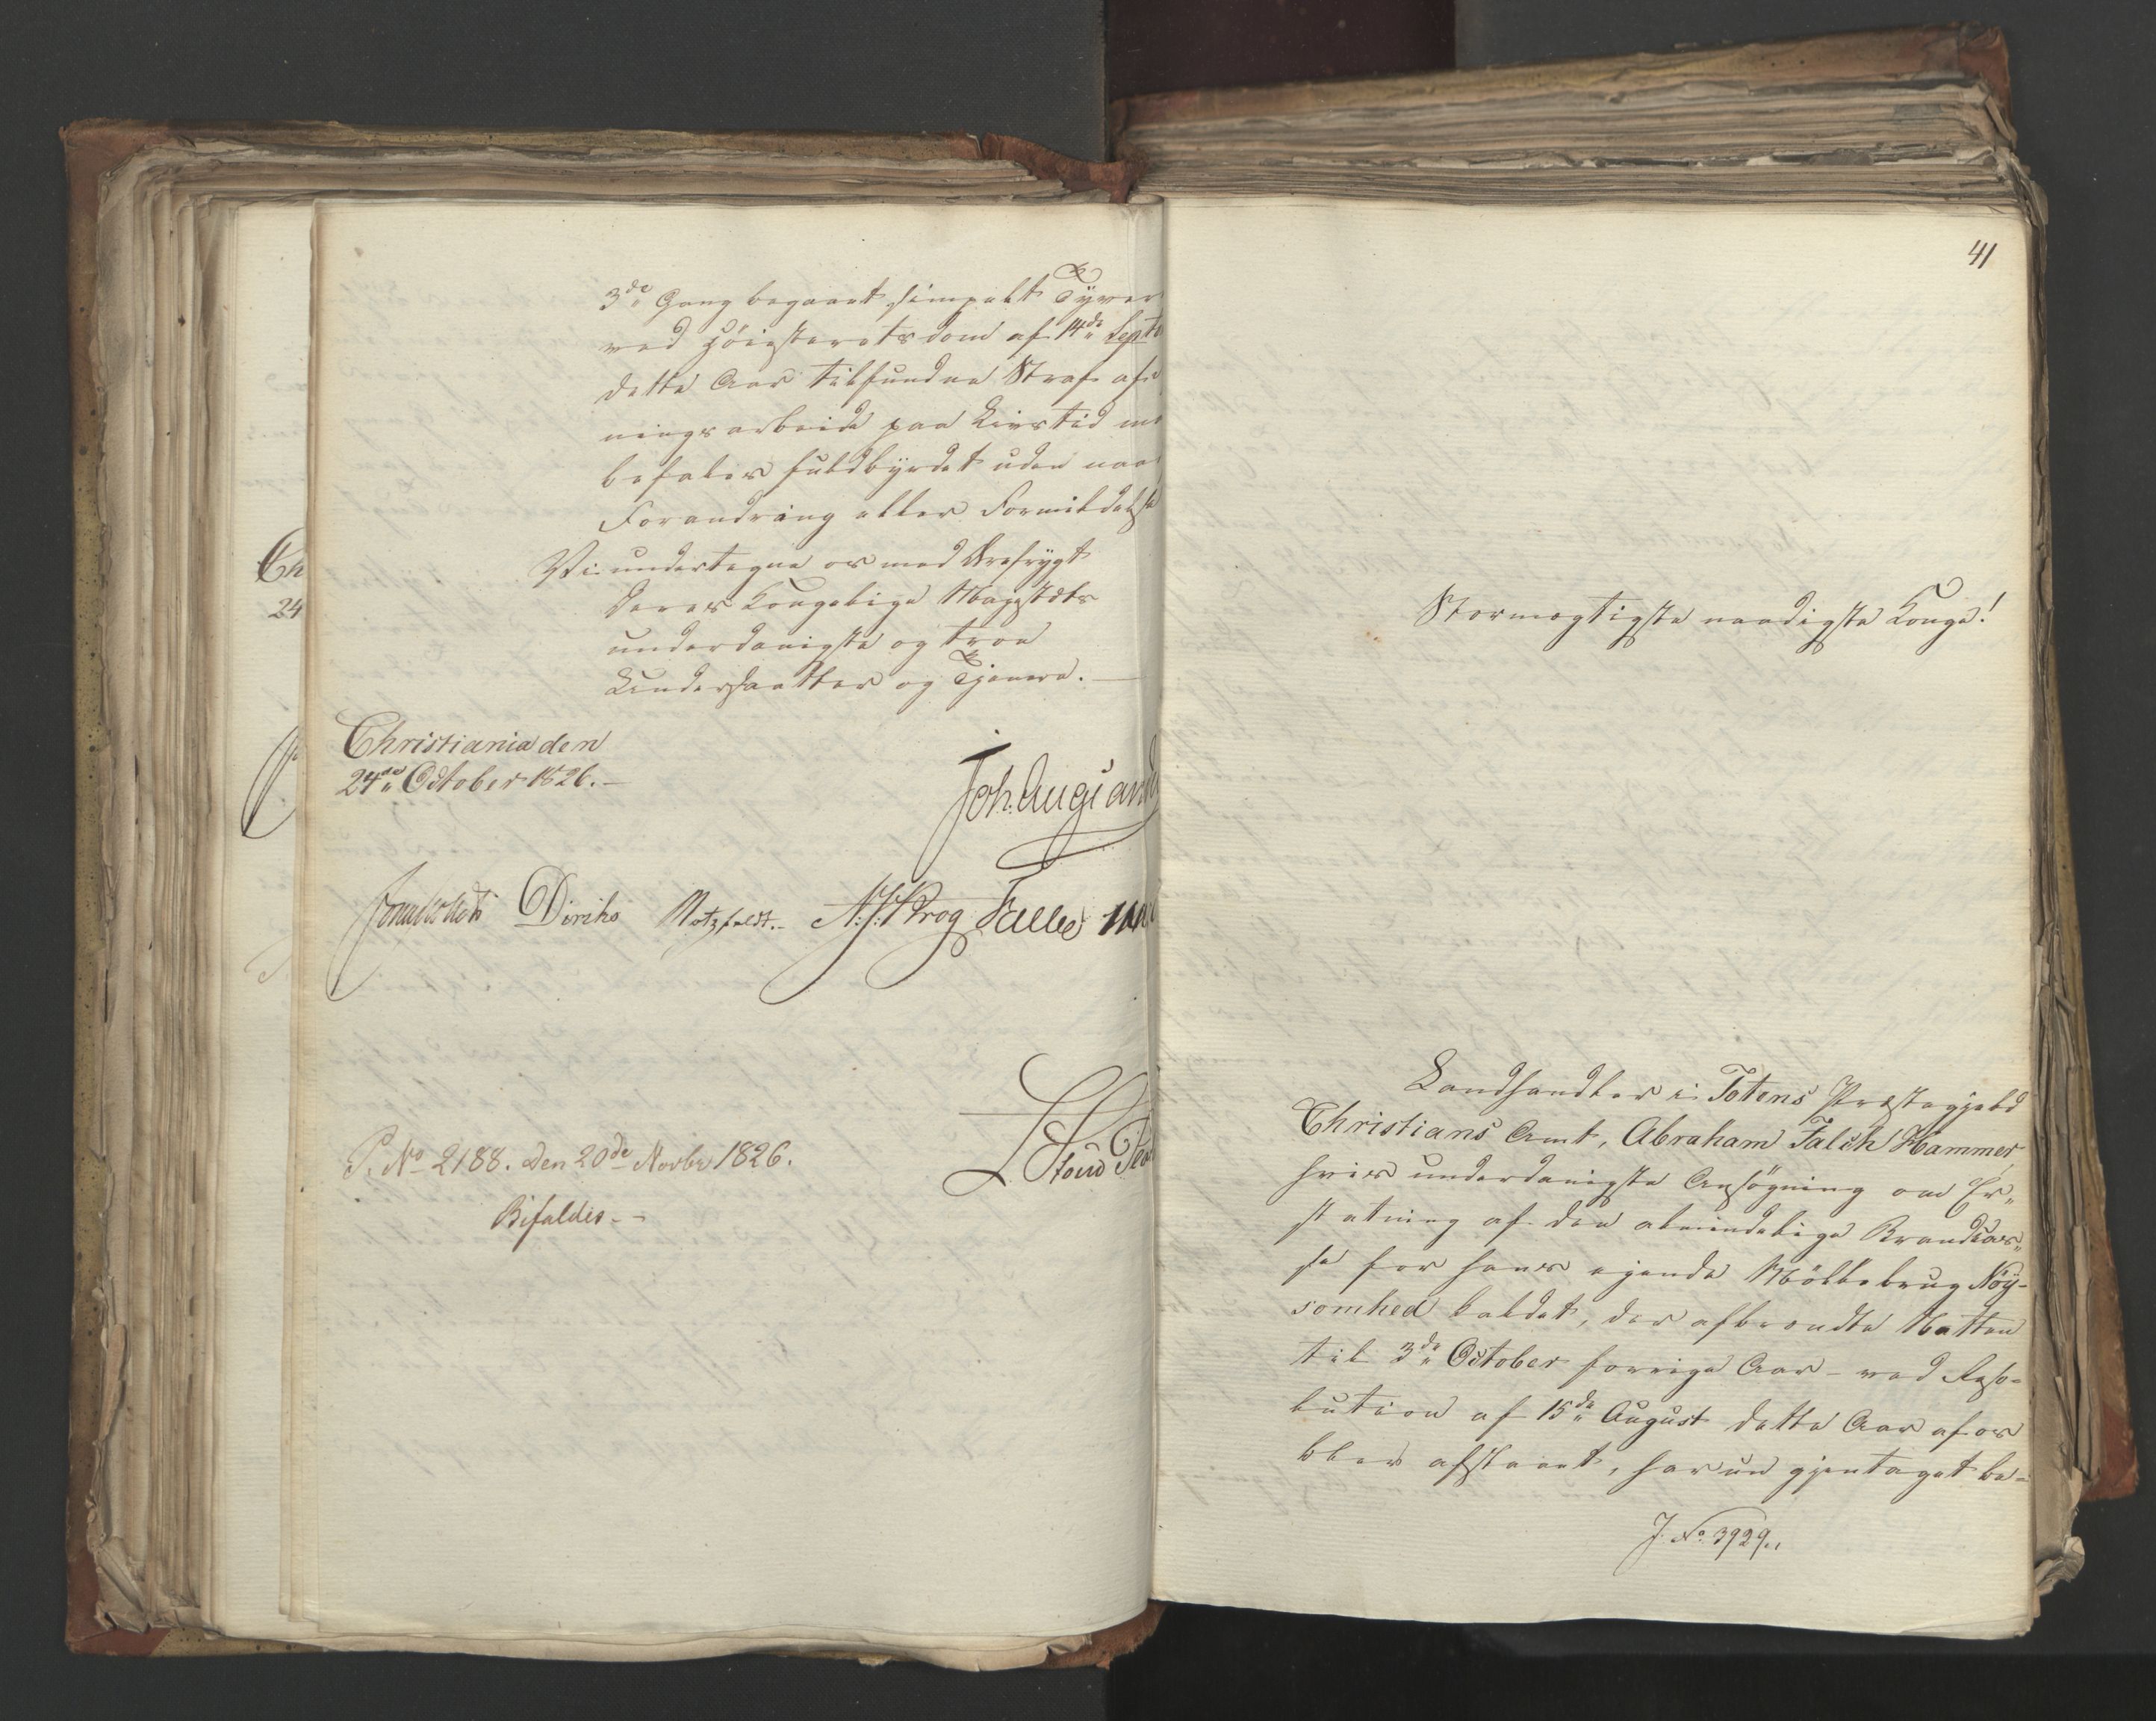 3de Gang begaaet simpelt Tyver
ved Höiesterets dom af 14de Septbr
dette Aar tilfundne Straf af
ningsarbeide paa Livstid
befales fuldbÿrdet uden
Forandring eller Formildelse
Vi undertegne os med Ærefrÿgt
Deres Kongelige Majestæts
underdanigste og troe
Undersaatter og Tjenere.
Christiania den
24de October 1826.
Joh. Aug: Sand
Jonas Collett Diriks Motzfeldt. A. J. Krog Falbe
P. No 2188. den 20de Novbr 1826.
Bifaldes.
41
Stormægtigste naadigste Konge!
Landhandler i Totens Præstegjeld
Christians Amt, Abraham Falch Hammer,
hvis underdanigste Ansögning om Er„
statning af den almindelige Brandcas„
se for hans ejende Möllebrug Nöÿ-
somhed kaldet, der afbrændte Natten
til 3de October forrige Aar – ved Reso-
lution af 15de August dette Aar af os
blev afslaaet, har nu gjentaget be-
J. No. 3929.